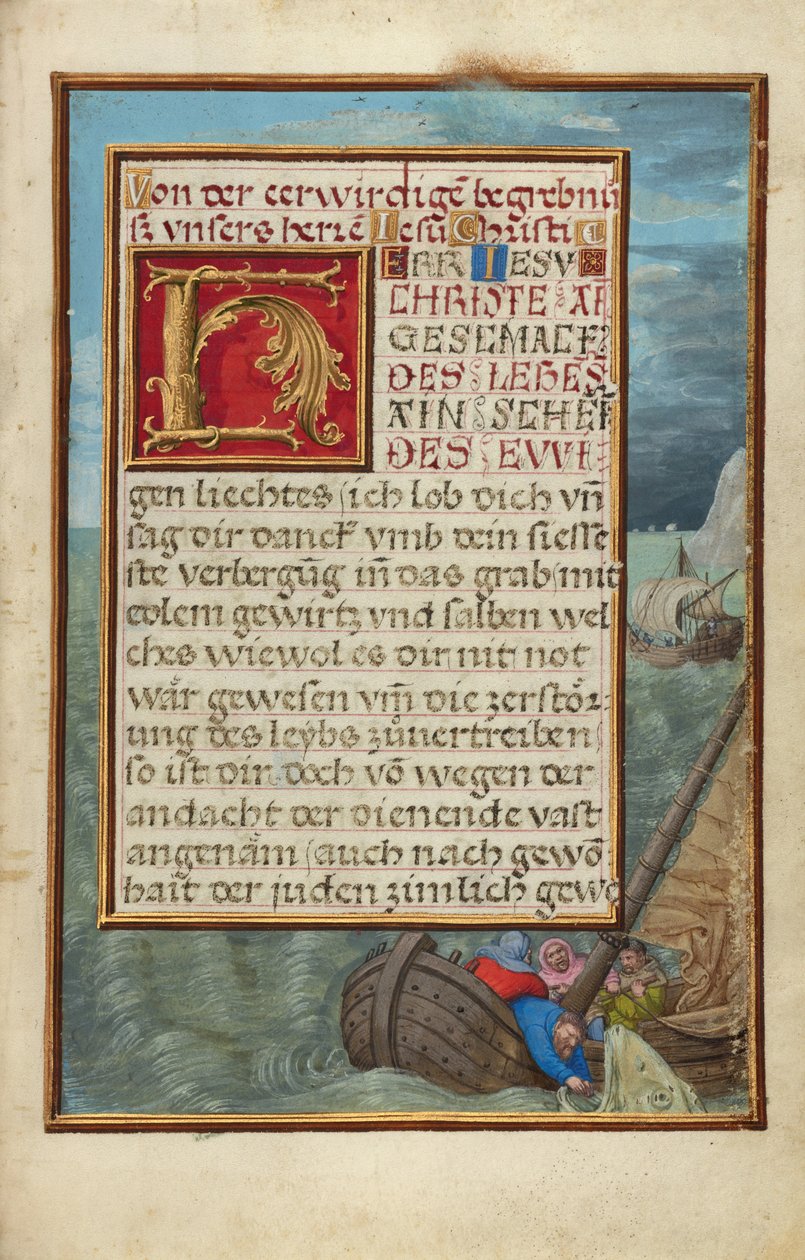 Von der eerwirdigē begrebnü
sz vnsers herrē Iesu Christi
HERR IESV
CHRISTE AI
GESCMACKꝫ
DES LEBĒS
AIN SCHEĪ
DES EVVI
gen liechtes (ich lob dich vn̄
sag dir danckꝛ vmb dein siesse
ste verbergūg in̄ das grab (mit
edlem gewirtz vnd salben wel
ches wiewol es dir nit not
wa᷑r gewesen vm̄ die zerstöꝛ:
ung des leybs zůuertreiben (
so ist dir doch vō wegen der
andacht der dienende vast
angenäm (auch nach gewō:
hait der juden zimlich gewe